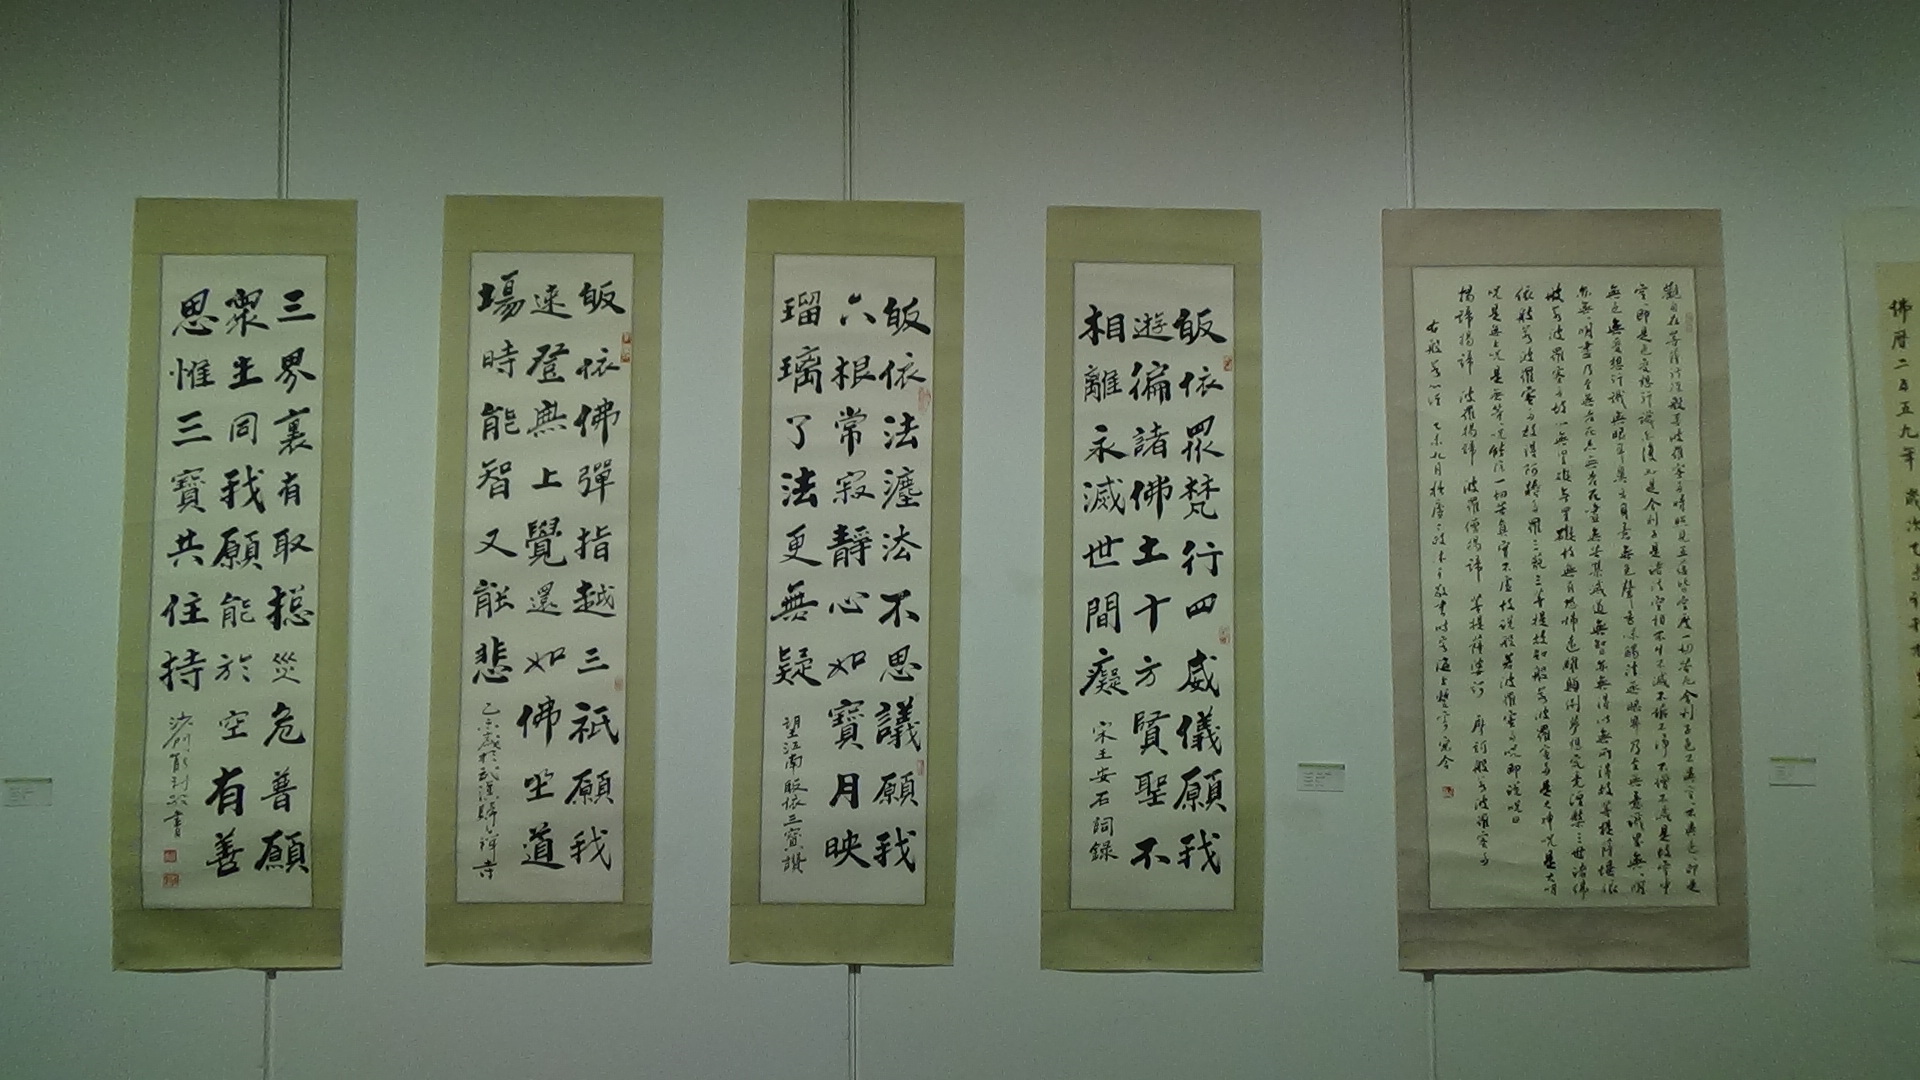 佛曆二五五九年 歲次乙未
觀自在菩薩行深般若波羅蜜多時照見五蘊皆空度一切苦厄舍利子色不異空空不異色色即是
空空即是色受想行識亦復如是舍利子是諸法空相不生不滅不垢不淨不增不減是故空中
無色無受想行識無眼耳鼻舌身意無色聲香味觸法無眼界乃至無意識界無無明
亦無無明盡乃至無老死亦無老死盡無苦集滅道無智亦無得以無所得故菩提薩埵依
般若波羅蜜多故心無罣礙無罣礙故無有恐怖遠離顛倒夢想究竟涅槃三世諸佛
依般若波羅蜜多故得阿耨多羅三藐三菩提故知般若波羅蜜多是大神咒是大明
咒是無上咒是無等等咒能除一切苦真實不虛故說般若波羅蜜多咒即說咒曰
揭諦揭諦 波羅揭諦 波羅僧揭諦 菩提薩婆訶 摩訶般若波羅蜜多
右般若心經 乙未九月 敬書時客海上
皈依眾梵行四威儀願我
遊徧諸佛土十方賢聖不
相離永滅世間癡
宋王安石詞錄
皈依法法法不思議願我
六根常寂靜心如寶月映
瑠璃了法更無疑
望江南皈依三寶讚
皈依佛彈指越三祇願我
速登無上覺還如佛坐道
場時能智又能悲
乙未歲於武漢歸元禪寺
三界裏有取捴災危普願
眾生同我願能於空有善
思惟三寶共住持
沙門 書